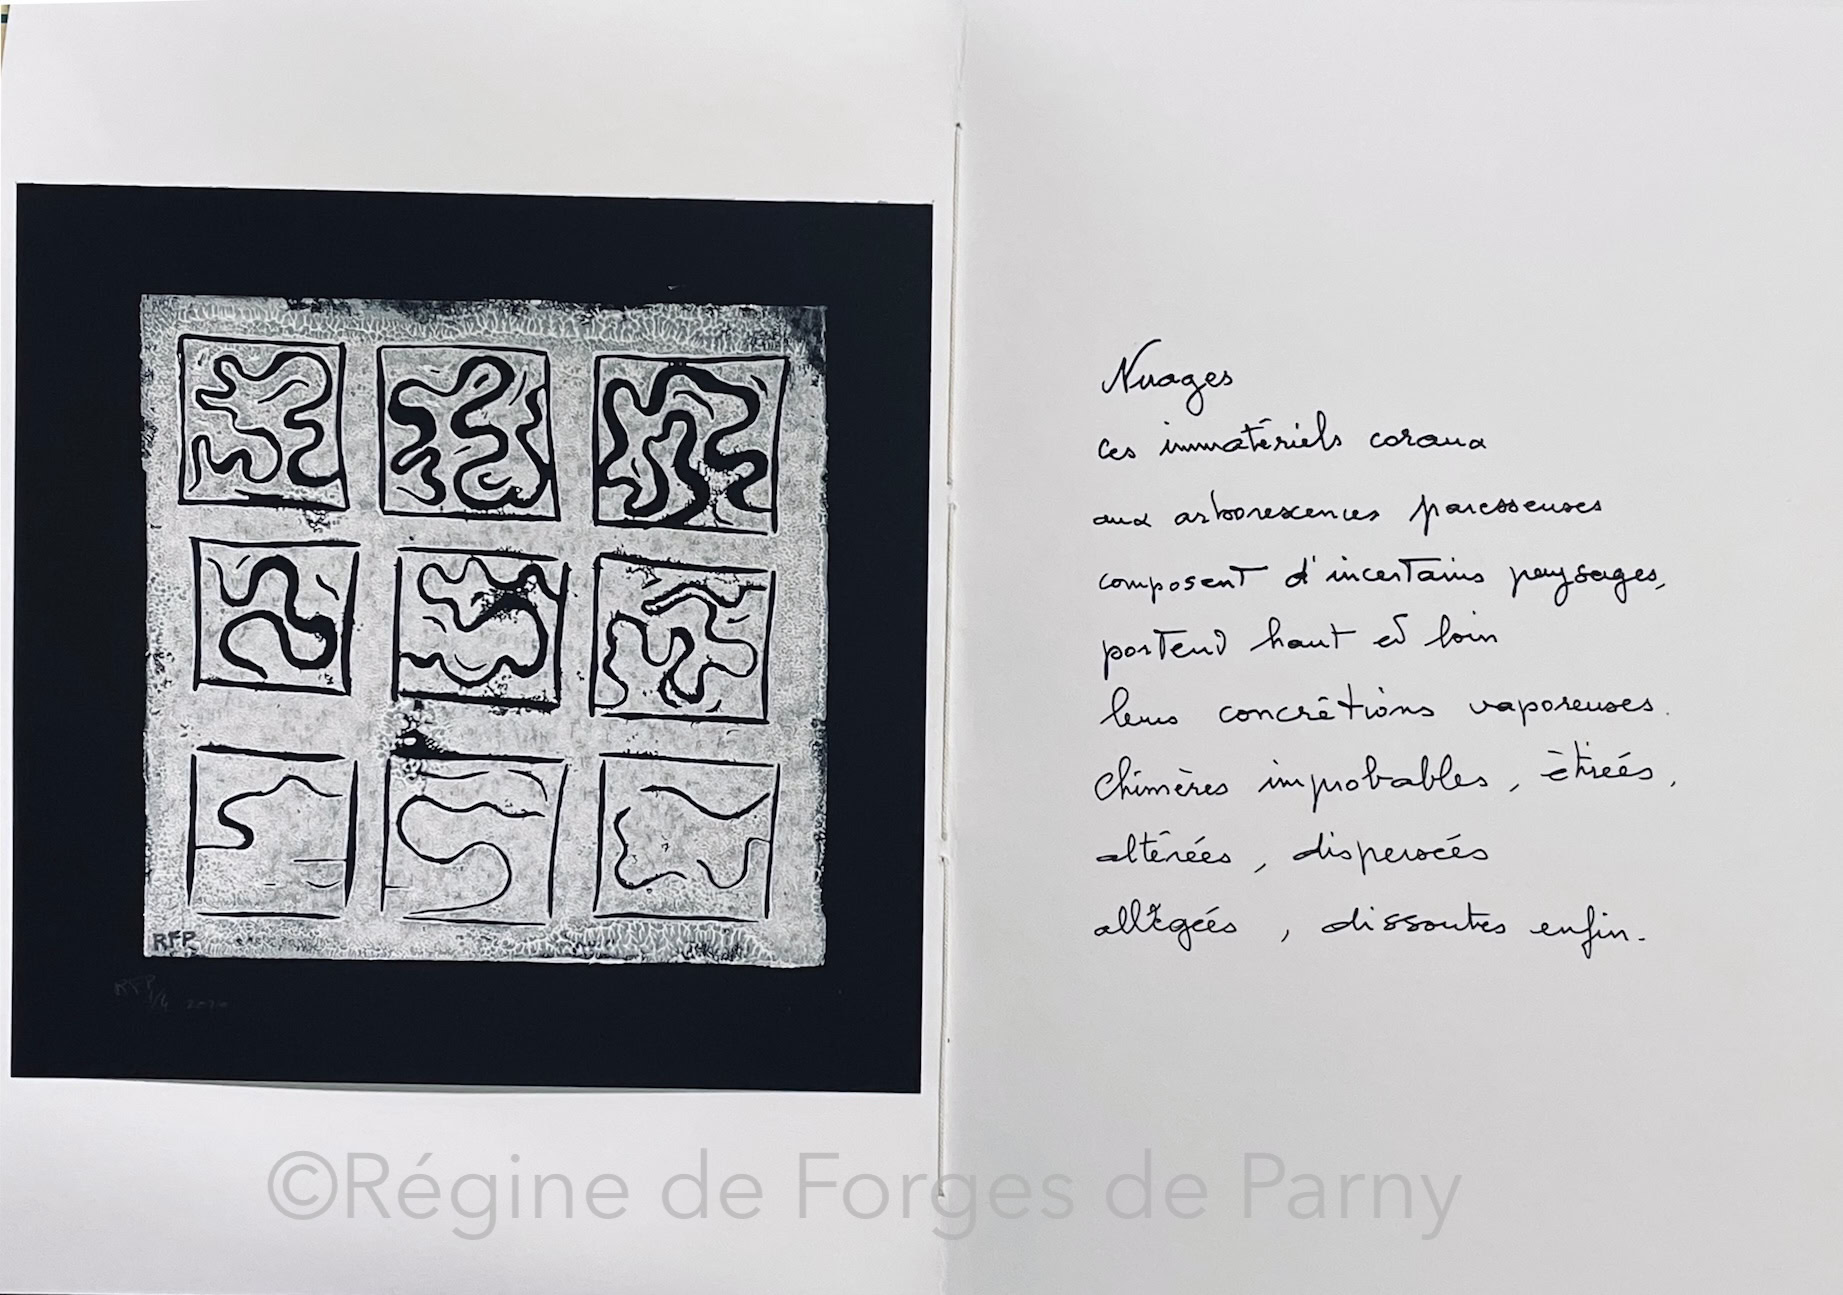 RFP
RFP 1/4 2020
Nuages
ces immatériels coraux
aux arborescences paresseuses
composent d'incertains paysages,
portent haut et loin
leurs concrétions vaporeuses.
Chimères improbables, étirées,
altérées, dispersées
allégées, dissoutes enfin.
©Régine de Forges de Parny